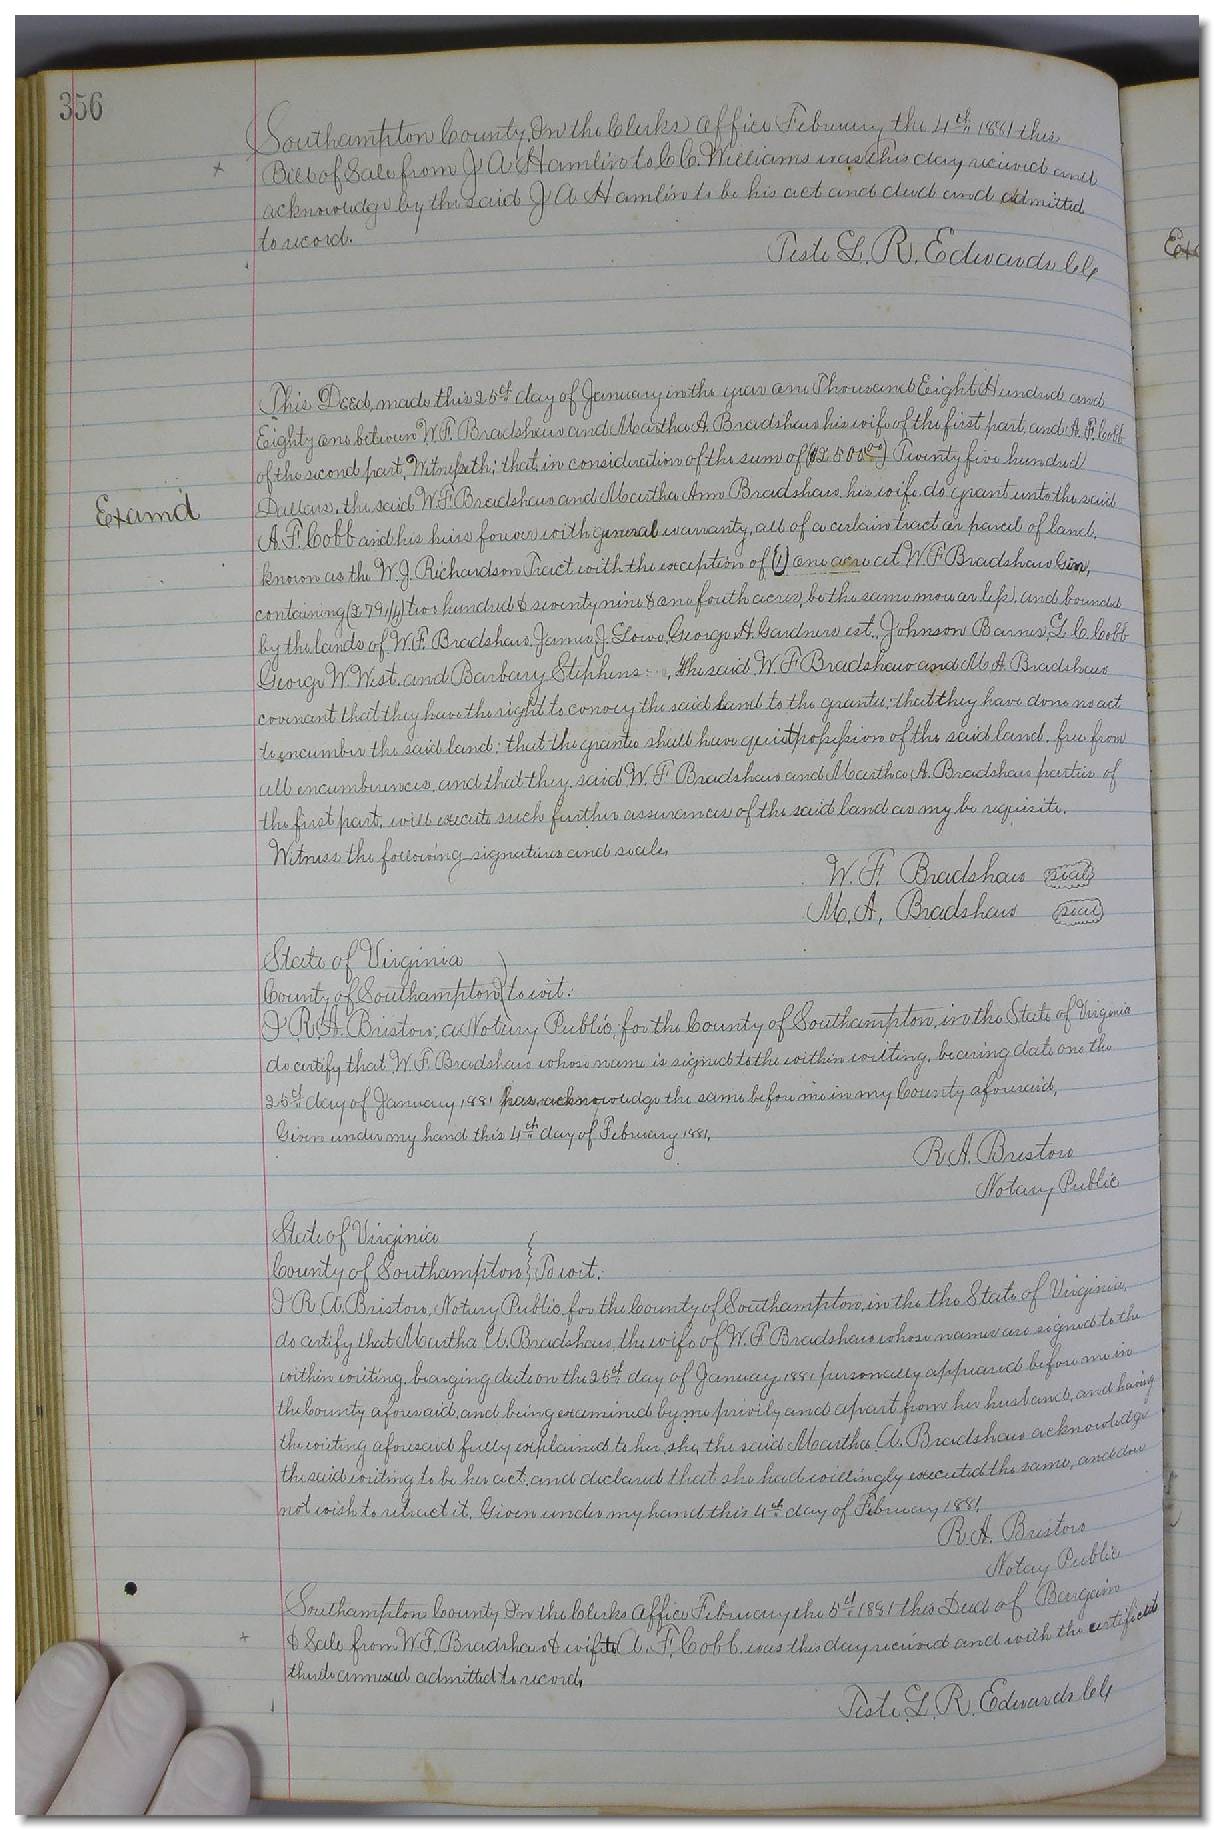 356
Southampton County, In the Clerks Office February the 4th 1881 this
Bill of Sale from J A Hamlin to C C. Williams was this day received and
acknowledge by the said J A Hamlin to be his act and deed and admitted
to record.
Teste L. R. Edwards Clk
Ex
This Deed, made this 25th day of January in the year one Thousand Eight Hundred and
Eighty one between W. F. Bradshaw and Martha A. Bradshaw his wife of the first part, and A. F. Cobb
of the second part, Witnesseth; that in consideration of the sum of ($2500.00) Twenty five hundred
Dollars, the said W. F Bradshaw and Martha Ann Bradshaw, his wife, do grant unto the said
Examd
A. F. Cobb and his heirs forever with general warranty, all of a certain tract or parcel of land,
known as the W. J. Richardson Tract with the exception of (1) one acre at W. F Bradshaws Gin,
containing (279 1/4) two hundred & seventy nine & one fouth acres, be the same more or less, and bounded
by the lands of W. F. Bradshaw, James J. Lowe, George H. Gardners est., Johnson Barnes, L. C. Cobb
George W. West. and Barbary Stephens: , The said W. F Bradshaw and M. A Bradshaw
covenant that they have the right to convey the said land to the grantee; that they have done no act
to encumber the said land; that the grantee shall have quiet possession of the said land. free from
all encumberences, and that they, said W. F Bradshaw and Martha A. Bradshaw parties of
the first part, will execute such further assurances of the said land as my be requisite.
Witness the following signatures and seals,
W. F. Bradshaw seal
M. A. Bradshaw seal
State of Virginia
County of Southampton) to wit:
I R. A. Bristow, a Notary Public, for the County of Southampton, in the State of Virginia
do certify that W. F. Bradshaw whose name is signed to the within writing, bearing date one the
25th day of January, 1881 has, acknowledge the same before me in my County aforesaid,
Given under my hand this 4th day of February 1881,
R A. Bristow
Notary Public
State of Virginia
County of Southampton; To wit:
I R A. Bristow, Notary Public, for the County of Southampton, in the the State of Virginia,
do certify that Martha A. Bradshaw, the wife of W. F Bradshaw whose names are signed to the
within writing, bearging date on the 25th day of January 1881 personally appeared before me in
the County aforesaid, and being examined by me privily and apart from her husband, and having
the writing aforesaid fully explained to her, she, the said Martha A. Bradshaw acknowledge
the said writing to be her act, and declared that she had willingly executed the same, and does
not wish to retract it, Given under my hand this 4th day of February 1881,
R A. Bristow
Notay Public
Southampton County In the Clerks Office February the 5th 1881 this Deed of Bargain
& Sale from W. F. Bradshaw & wife to A. F. Cobb, was this day received and with the certificate
thereto annexed admitted to record,
Teste L. R. Edwards Clk